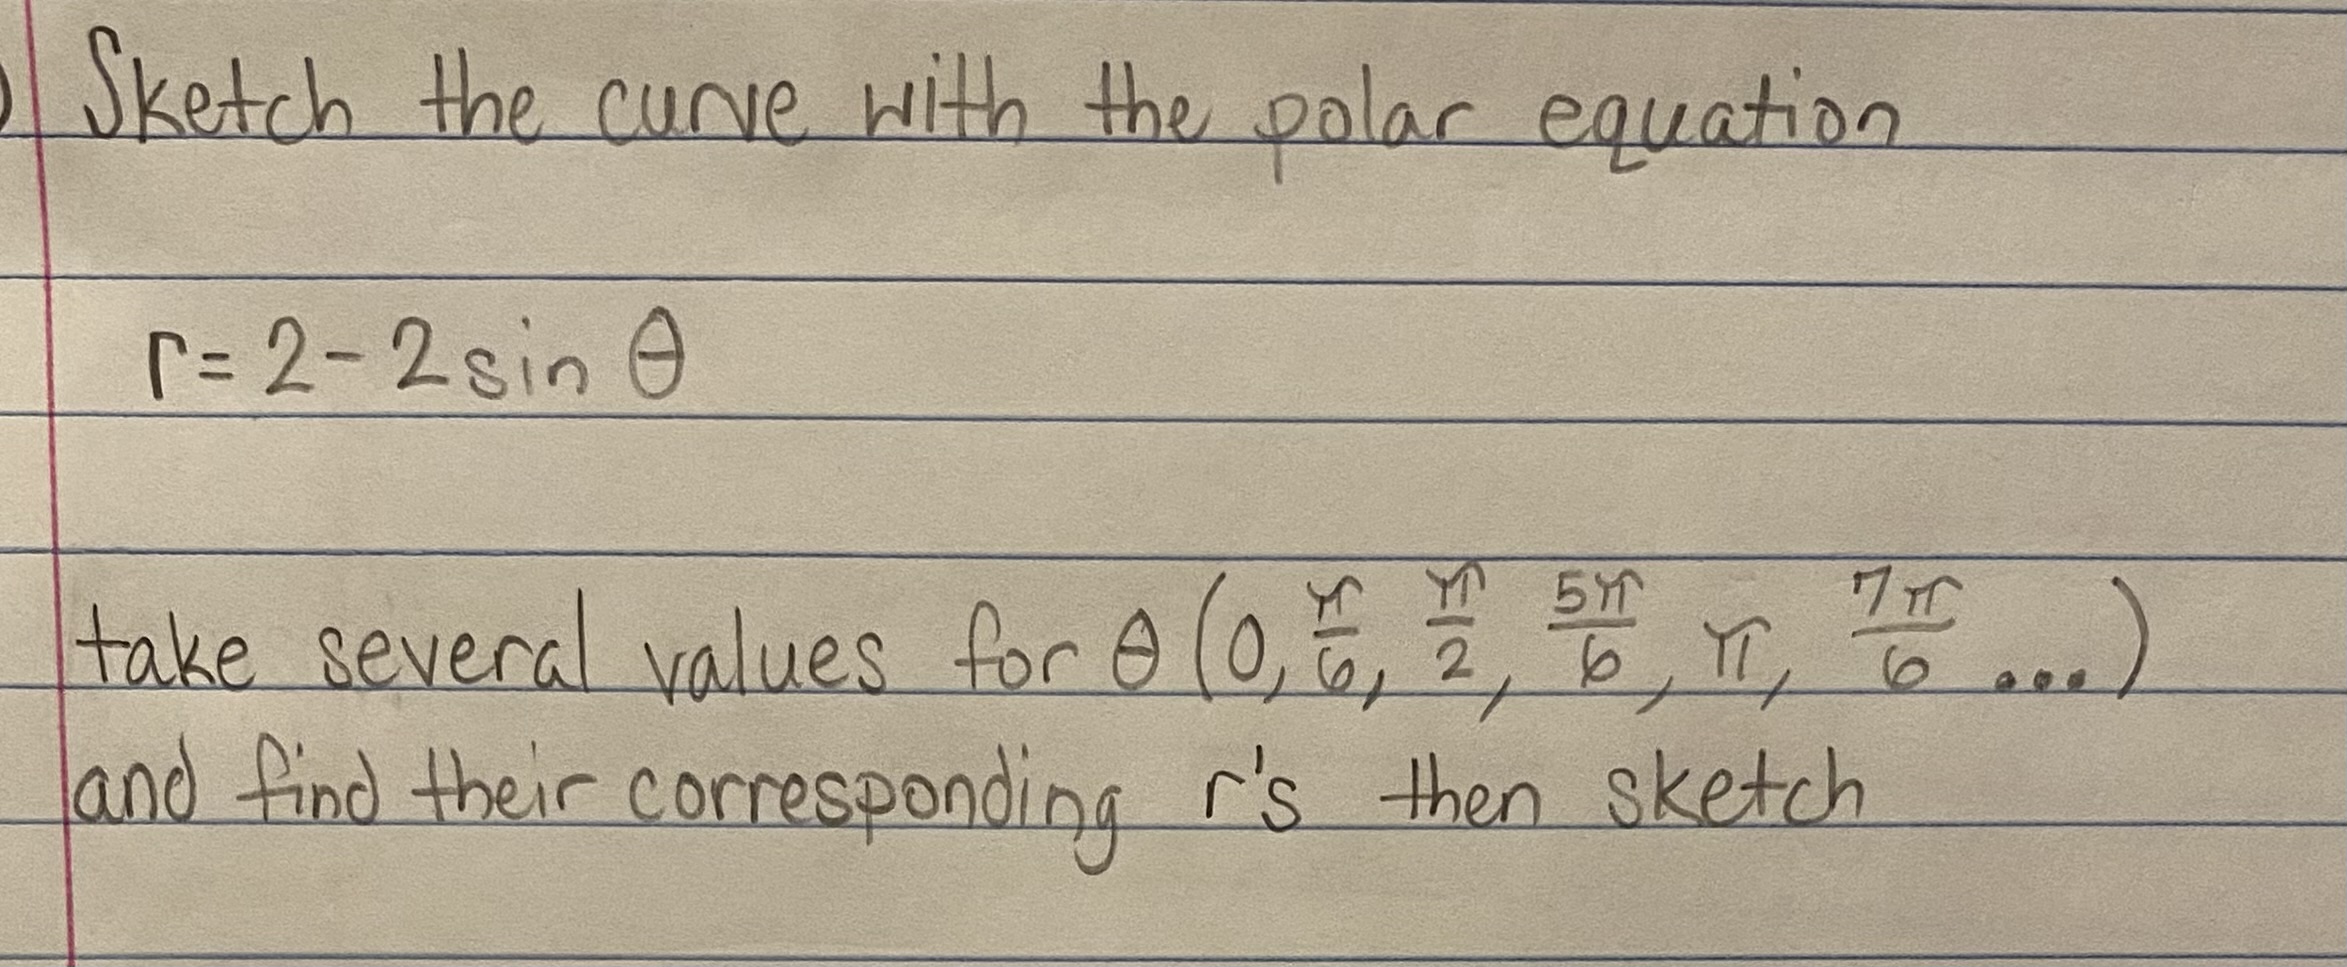 ) Sketch the curve with the polar equation
r = 2 - 2 sin θ
take several values for θ (0, π/6, π/2, 5π/6, π, 7π/6 ...)
and find their corresponding r's then sketch